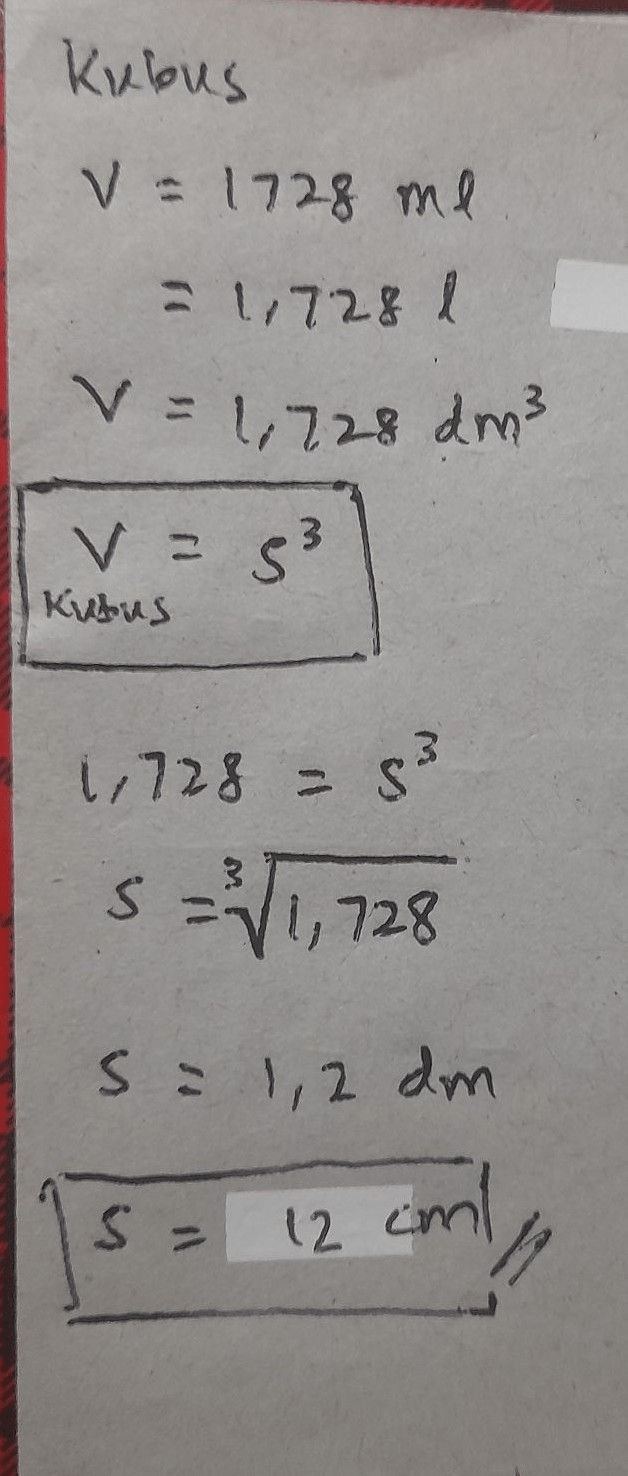 Kubus
V = 1728 ml
= 1,728 l
V = 1,728 dm³
V = s³
Kubus
1,728 = s³
s = ³√1,728
s = 1,2 dm
s = 12 cm //